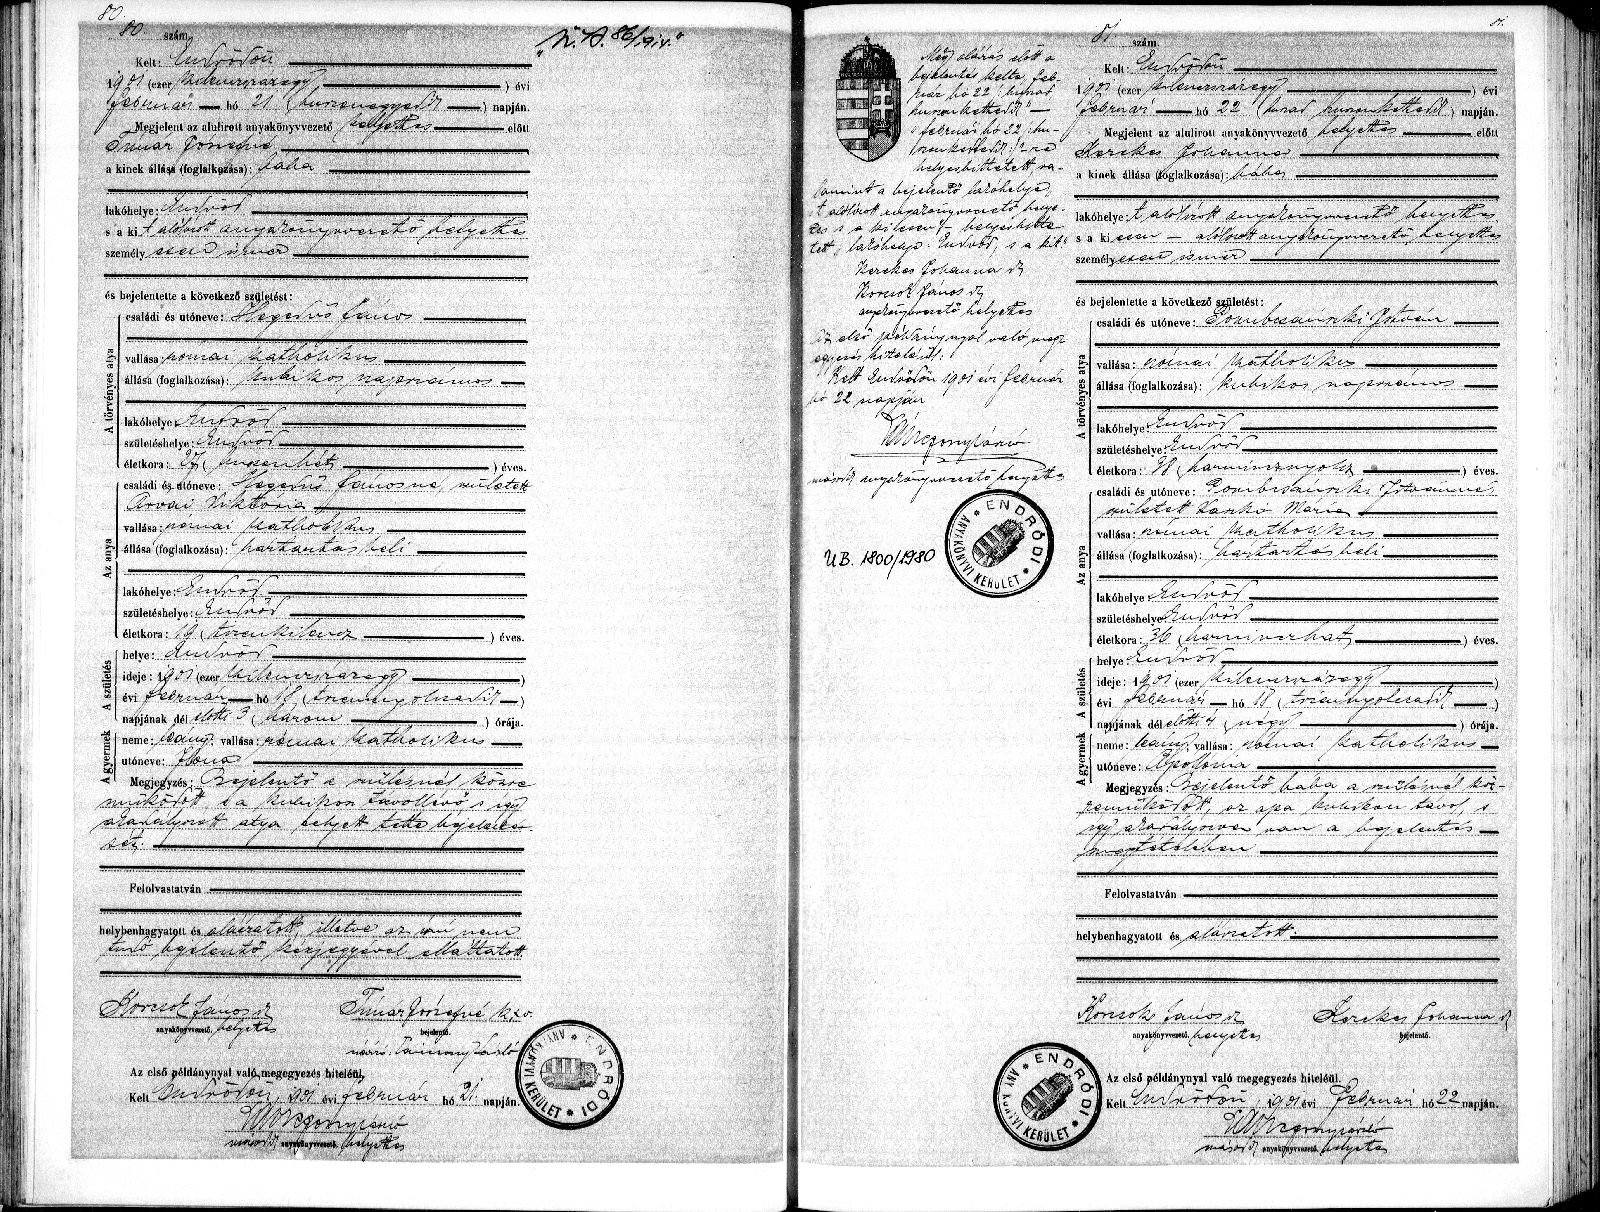 80.
80. szám.
"U. A. 86/914."
Kelt: Endrődön
1901 (ezer kilencszázegy) évi
február hó 21 (huszonegyedik) napján.
Megjelent az alulirott anyakönyvvezető helyettes előtt
Tímár Józsefné
a kinek állása (foglalkozása): bába
lakóhelye: Endrőd
s a kit alólirott anyakönyvvezető helyettes
személyesen ismer
és bejelentette a következő születést:
A törvényes atya
családi és utóneve: Hegedűs János
vallása: római katholikus
állása (foglalkozása): kubikos napszámos
lakóhelye: Endrőd
születéshelye: Endrőd
életkora: 27 (huszonhét) éves.
Az anya
családi és utóneve: Hegedűs Jánosné, született
Arvai Viktória
vallása: római katholikus
állása (foglalkozása): háztartásbeli
lakóhelye: Endrőd
születéshelye: Endrőd
életkora: 19 (tizenkilencz) éves.
A születés
helye: Endrőd
ideje: 1901 (ezer kilencszázegy)
évi február hó 18 (tizennyolcadik)
napjának dél előtti 3 (három) órája.
A gyermek
neme: leány; vallása: római katholikus
utóneve: Ilona
Megjegyzés: Bejelentő a szülésnél közre
működött, s a kubikos távollévő s így
akadályozott atya helyett tette bejelenté-
sét.
Felolvastatván
helybenhagyatott és aláiratott, illetve az írni nem
tudó bejelentő kézjegyével elláttatott.
Korcsok János sk
anyakönyvvezető helyettes
Tímár Józsefné kzv.
bejelentő.
Az első példánynyal való megegyezés hiteléül,
Kelt Endrődön, 1901 évi február hó 21 napján.
másod anyakönyvvezető helyettes
ENDRŐDI ANYAKÖNYVI KERÜLET
81.
81 szám.
Még aláírás előtt a
bejelentés kelte "feb-
ruár hó 22 /: huszad
huszonkettedik"
"február hó 22 /: hu-
szonkettedik :/"-re
helyesbíttetett, va-
lamint a bejelentő lakóhelye,
"t alólirott anyakönyvvezető helyet-
tes s a ki esen" helyesbítte-
tett "lakóhelye: Endrőd, s a kit"
Kerekes Johanna sk
Korcsok János sk
anyakönyvvezető helyettes
Az első példánynyal való meg-
egyezés hiteléül:
Kelt Endrődön 1901 évi február
hó 22 napján
másod anyakönyvvezető helyettes
ENDRŐDI ANYAKÖNYVI KERÜLET
UB. 1800/1980
Kelt: Endrődön
1901 (ezer kilencszázegy) évi
február hó 22 (huszad huszonkettedik) napján.
Megjelent az alulirott anyakönyvvezető helyettes előtt
Kerekes Johanna
a kinek állása (foglalkozása): bába
lakóhelye: t alólirott anyakönyvvezető helyettes
s a ki esen – alólirott anyakönyvvezető helyettes
személyesen ismer
és bejelentette a következő születést:
A törvényes atya
családi és utóneve: Gombcsánszki István
vallása: római katholikus
állása (foglalkozása): kubikos napszámos
lakóhelye: Endrőd
születéshelye: Endrőd
életkora: 38 (harmincznyolcz) éves.
Az anya
családi és utóneve: Gombcsánszki Istvánné,
született Hanko Mária
vallása: római katholikus
állása (foglalkozása): háztartásbeli
lakóhelye: Endrőd
születéshelye: Endrőd
életkora: 36 (harminczhat) éves.
A születés
helye: Endrőd
ideje: 1901 (ezer kilencszázegy)
évi február hó 18 (tizennyolcadik)
napjának dél előtti 4 (négy) órája.
A gyermek
neme: leány; vallása: római katholikus
utóneve: Apolonia
Megjegyzés: Bejelentő bába a szülésnél köz-
reműködött, az apa kubikon távol, s
így akadályozva van a bejelentés
megtételében
Felolvastatván
helybenhagyatott és aláiratott.
Korcsok János sk
anyakönyvvezető. helyettes
Kerekes Johanna sk
bejelentő.
Az első példánynyal való megegyezés hiteléül.
Kelt Endrődön, 1901 évi Február hó 22 napján.
másod anyakönyvvezető helyettes
ENDRŐDI ANYAKÖNYVI KERÜLET